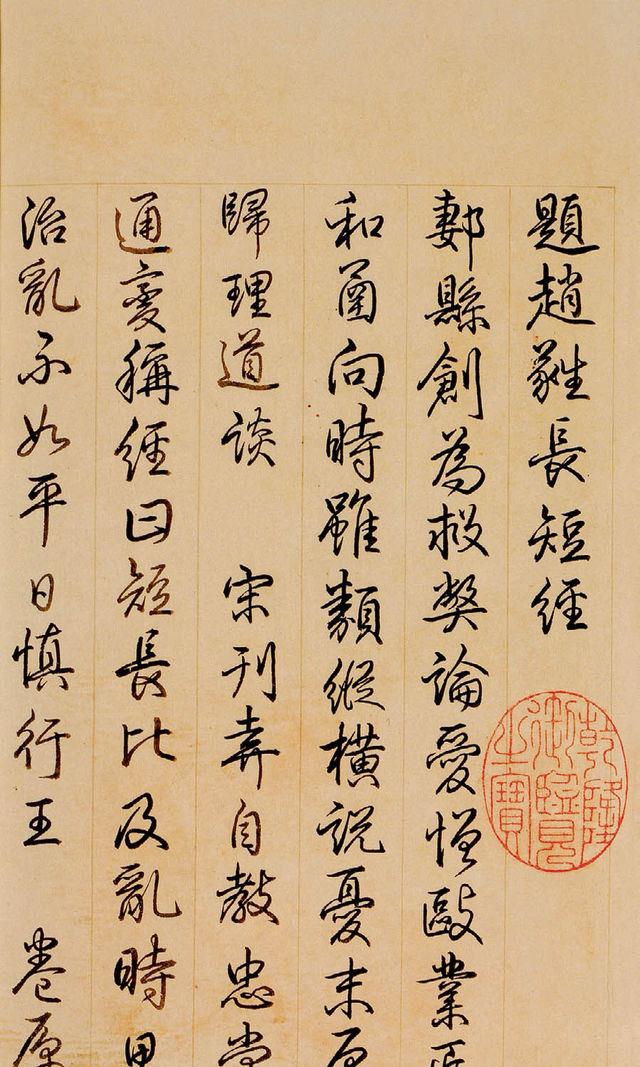 題趙蕤長短經
郪縣創為救獘論愛憎毆業
和函向時雖類縱橫說憂末
歸理道談 宋刊弆自教忠
通變稱經曰短長比及亂時
治亂不如平日慎行王 卷原
乾隆御覽之寶